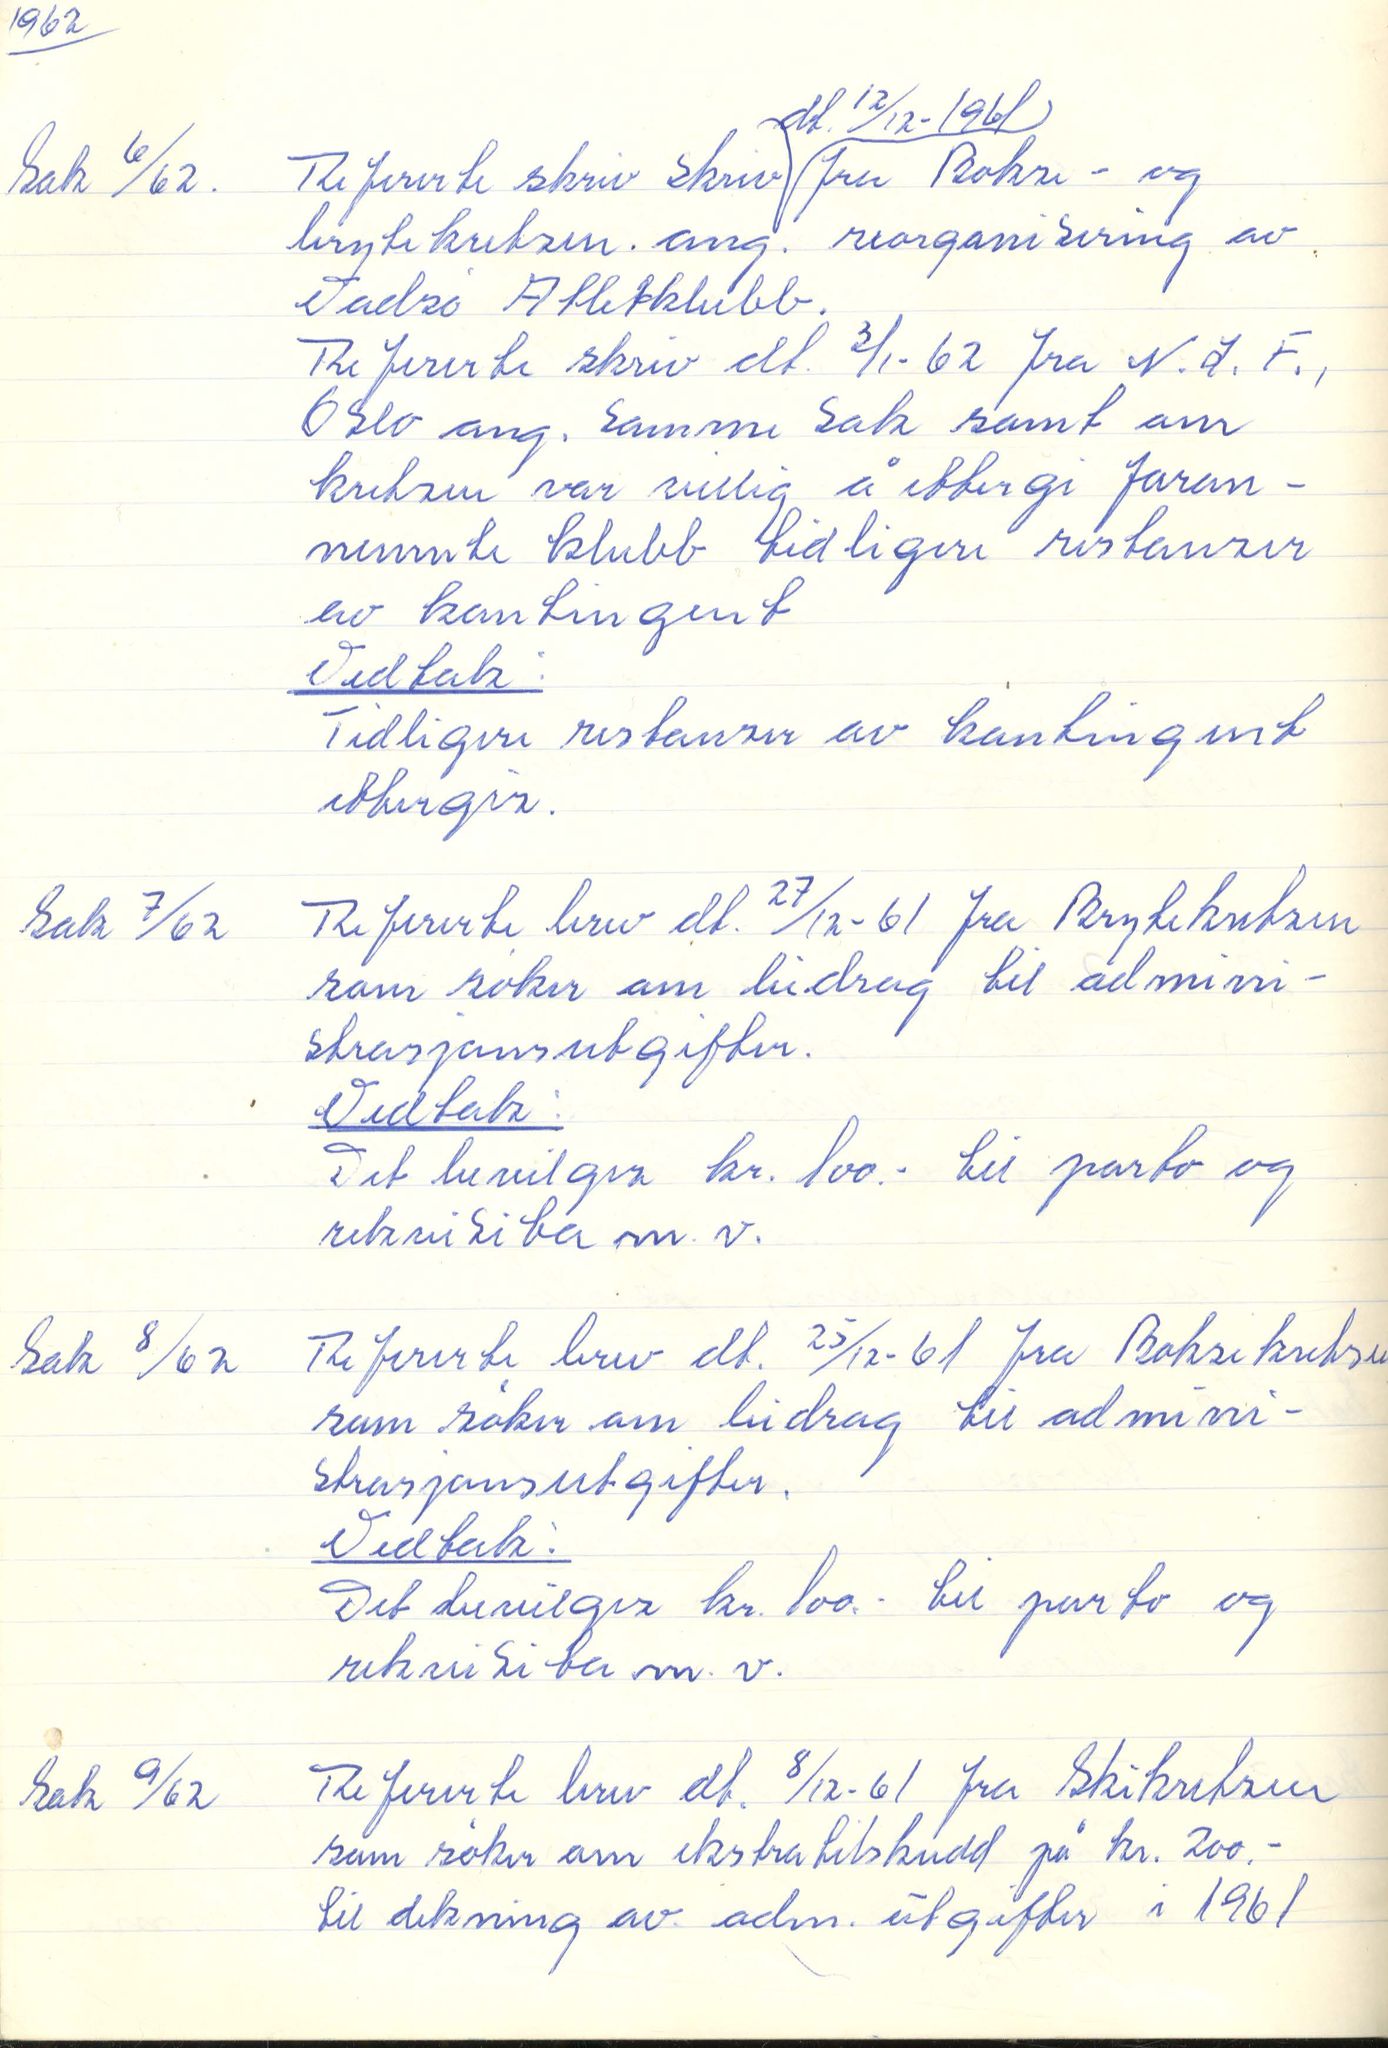 1962
dt. 12/12-1961
Sak 6/62. Refererte skriv skriv fra Bokse- og
brytekretsen. ang. reorganisering av
Vadsö Atletklubb.
Refererte skriv dt. 3/1-62 fra N.I.F.,
Oslo ang. samme sak samt om
kretsen var villig å ettergi foran-
nevnte klubb tidligere restanser
av kontingent
Vedtak:
Tidligere restanser av kontingent
ettergis.
Sak 7/62 Refererte brev dt. 27/12-61 fra Brytekretsen
som söker om bidrag til admini-
strasjonsutgifter.
Vedtak:
Det bevilges kr. 100.- til porto og
rekvisita m.v.
Sak 8/62 Refererte brev dt. 25/12-61 fra Boksekretsen
som söker om bidrag til admini-
strasjonsutgifter.
Vedtak:
Det bevilges kr. 100.- til porto og
rekvisita m.v.
Sak 9/62 Refererte brev dt. 8/12-61 fra Skikretsen
som söker om ekstratilskudd på kr. 200.-
til dekning av adm. utgifter i 1961